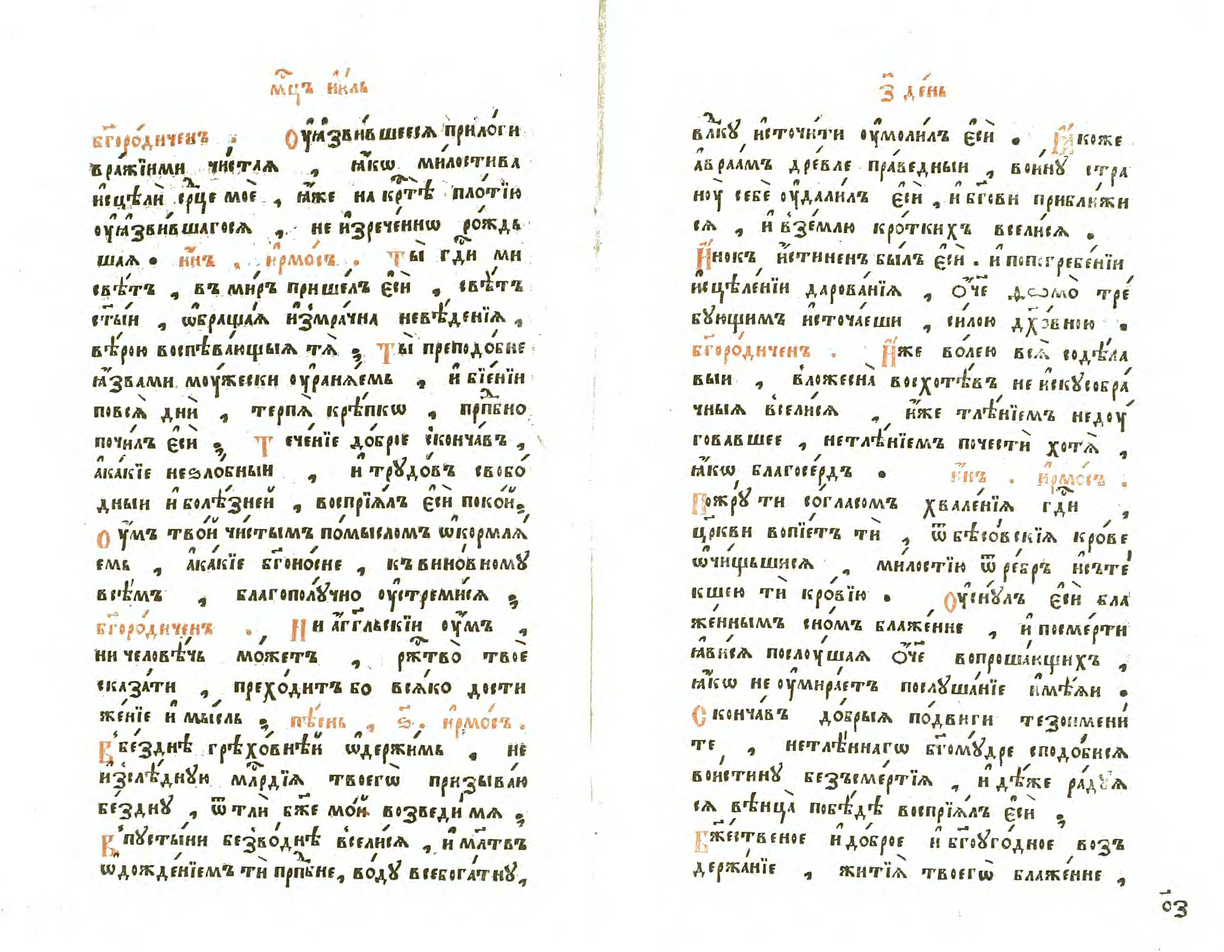 мц҃ъ ию҃ль
бг҃оро́диченъ . Оу҆ꙗ҆́звившееся прило́ги
вра́жїими чи́стая , ꙗ҆́кѡ ми́лостива
и҆сцѣлѝ ср҃це моѐ , ꙗ҆́же на кр҃тѣ̀ пло́тїю
оу҆ꙗ҆́звившагося , не и҆зрече́ннѡ ро́ждь
шая . нн҃ѣ . і҆рмо́съ . Ты̀ гдⷭ҇и ми
свѣ́тъ , въ ми́ръ прише́лъ є҆сѝ , свѣ́тъ
ст҃ы́и , ѡ҆браща́ѧ и҆змра́чна невѣ́денїѧ ,
вѣ́рою воспѣва́ющыѧ тѧ̀ ; Ты̀ преподо́бне
ꙗ҆́звами моу́жески оу҆ранѧ́емь , и҆ бїе́нїи
повсѧ̀ дни̑ , терпѧ̀ крѣ́пкѡ , прпⷣбно
почи́лъ є҆сѝ ; Тече́нїе до́брое сконча́въ ,
а҆ка́кїе неѕло́бныи , и҆ трудо́въ свобо́
дныи и҆ болѣ́зней , воспрїѧ́лъ є҆сѝ поко́й;
Оу҆́мъ тво́й чи́стымъ по́мысломъ ѡ҆кормлѧ́
емь , а҆ка́кїе бг҃оно́сне , къ вино́вному
всѣ́мъ , благополу́чно оу҆стреми́ся ;
бг҃оро́диченъ . Ни а҆́гг҃льскїи оу҆́мъ ,
ни человѣ́чь мо́жетъ , ржⷭ҇тво̀ твоѐ
сказа́ти , прехо́дитъ бо всѧ́ко дости
же́нїе и҆ мы́сль ; пѣ́снь , ѕ҃. і҆рмо́съ .
Въ бе́зднѣ грѣхо́внѣй ѡ҆держи́мь , не
и҆зслѣ́дную млⷭ҇рдїѧ твоегѡ̀ призыва́ю
бе́здну , ѿ тлѝ бж҃е мо́й возведи́ мѧ ;
Въ пусты́ни безво́днѣ всели́ся , и҆ мл҃твъ
ѡ҆дожде́нїемъ ти прпⷣбне, во́ду всебога́тну,
з҃ де́нь
влⷣку и҆сточи́ти оу҆моли́лъ є҆сѝ . Ꙗ҆́коже
а҆враа́мъ дре́вле пра́ведныи , во́ину стра́
ноу себѐ оу҆дали́лъ є҆сѝ , и҆ бг҃ови прибли́жи
сѧ , и҆ в зе́млю кро́ткихъ всели́сѧ .
И҆́нокъ и҆́стиненъ бы́лъ є҆сѝ . и҆ по погребе́нїи
и҆сцѣле́нїи дарова́нїѧ , о҆́ч҃е тре́
бующимъ и҆сточа́еши , си́лою дх҃о́вною .
бг҃оро́диченъ . И҆́же во́лею всѧ̀ содѣ́ла
выи , в ложесна̀ восхотѣ́въ не и҆скусобра́
чныѧ всели́сѧ , и҆́же тлѣ́нїемъ недоу́
говавшее , нетлѣ́нїемъ поче́сти хотѧ̀ ,
ꙗ҆́кѡ благосе́рдъ . нн҃ѣ . і҆рмо́съ .
Пожру́ ти со́гласомъ хвале́нїѧ гдⷭ҇и ,
цр҃кви вопїе́тъ тѝ , ѿ бѣсо́вскїѧ кро́ве
ѡ҆чи́щьшисѧ , ми́лостїю ѿ ре́бръ и҆стє́
кшею тѝ кро́вїю . Оу҆снꙋ́лъ є҆сѝ бла
же́ннымъ сно́мъ блаже́нне , и҆ посме́рти
ꙗ҆ви́сѧ послоу́шаѧ о҆́ч҃е вопроша́ющихъ ,
ꙗ҆́кѡ не оу҆мира́етъ послуша́нїе и҆мѣ́ѧи .
Сконча́въ до́брыѧ по́двиги тезоимени́
те , нетлѣ́ннагѡ бг҃ому́дре сподо́бисѧ
вои́стину безъсме́ртїѧ , и҆ дѣ́же ра́дуѧ
сѧ вѣнца̀ побѣ́дѣ воспрїѧ́лъ є҆сѝ ;
Бж҃е́ственое и҆ до́брое и҆ бг҃оуго́дное возъ
держа́нїе , житїѧ̀ твоегѡ̀ блаже́нне ,
о҃з